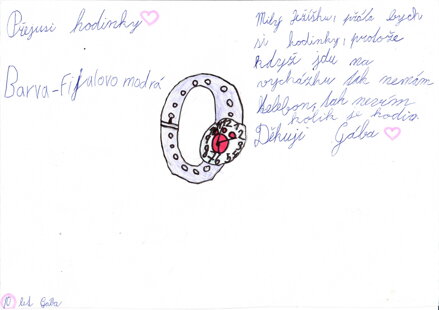 Přejusi hodinky
Barva-Fijalovo modrá
Milý Ježíšku, přála bych
si hodinky, protože
když jdu na
vycházku tak nemám
telefon, tak nevím
kolik je hodin
Děkuji Gába
12 1 2
10 let Gába